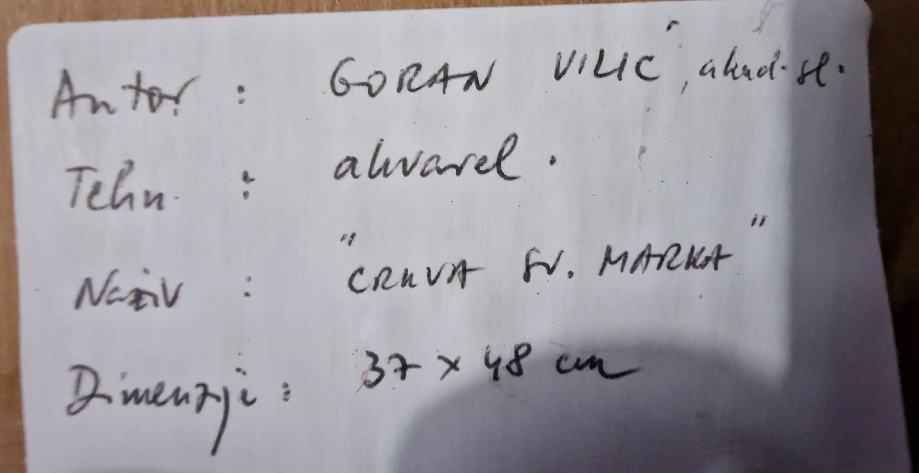 Autor : GORAN VILIĆ, akad. sl.
Tehn : akvarel.
Naziv : "CRKVA SV. MARKA"
Dimenzije : 37 x 48 cm